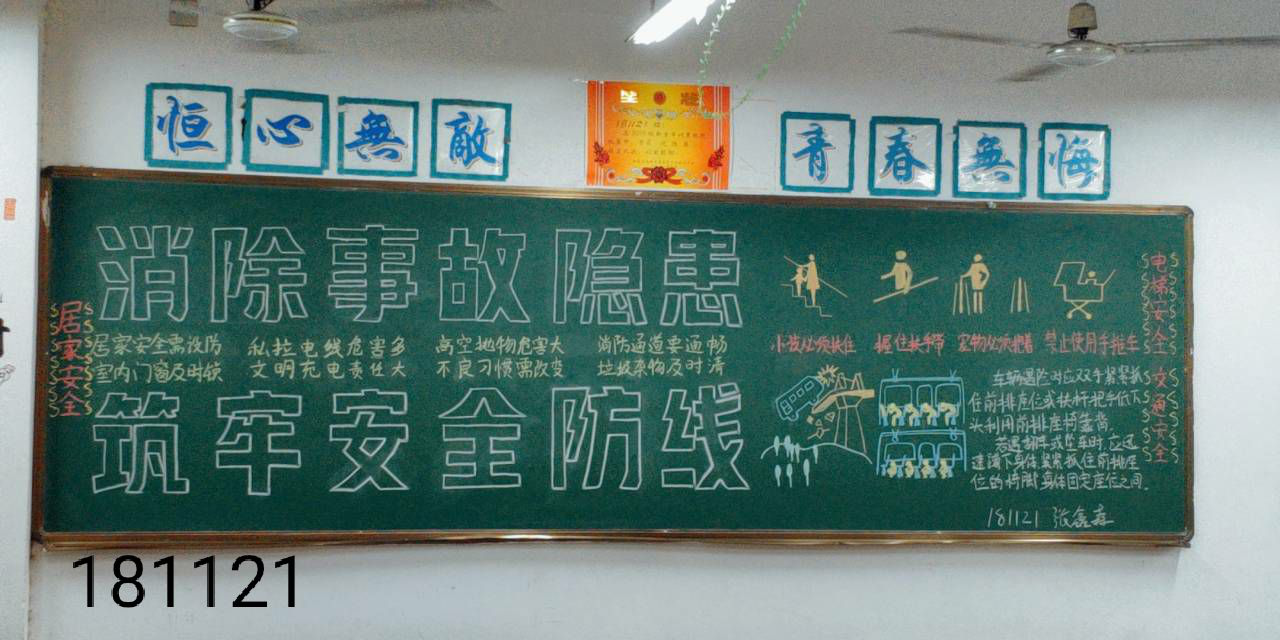 恒心無敵
青春無悔
181121
消除事故隐患
居家安全
居家安全需设防 私拉电线危害多 高空抛物危害大 消防通道要通畅
室内门窗及时锁 文明充电责任大 不良习惯需改变 垃圾杂物及时清
筑牢安全防线
电梯安全
小孩必须扶住 握住扶手带 宠物必须抱着 禁止使用手推车
交通安全
车辆遇险时应双手紧紧抓
住前排座位或扶杆把手低下
头利用前排座椅靠背
若遇翻车或坠车时,应迅
速蹲下身体紧紧抓住前排座
位的椅脚身体固定座位之间.
181121 张鑫森
181121